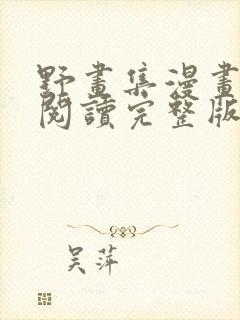 野畫集漫畫
閱讀完整版
吴萍